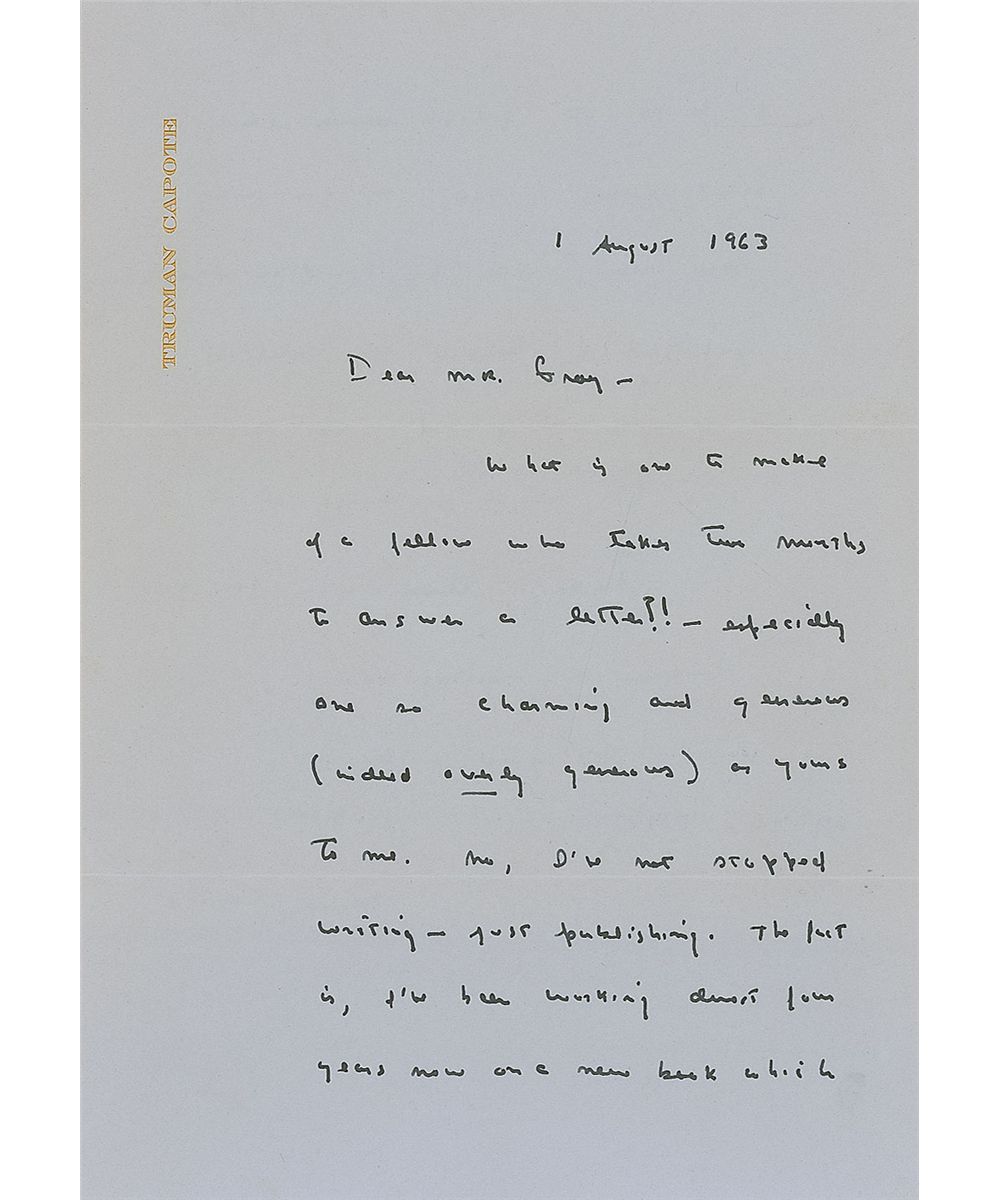 TRUMAN CAPOTE
1 August 1963
Dear Mr. Gray —
What is one to make
of a fellow who takes two months
to answer a letter?! — especially
one so charming and generous
(indeed overly generous) as yours
to me. No, I've not stopped
writing — just publishing. The fact
is, I've been working almost four
years now on a new book which